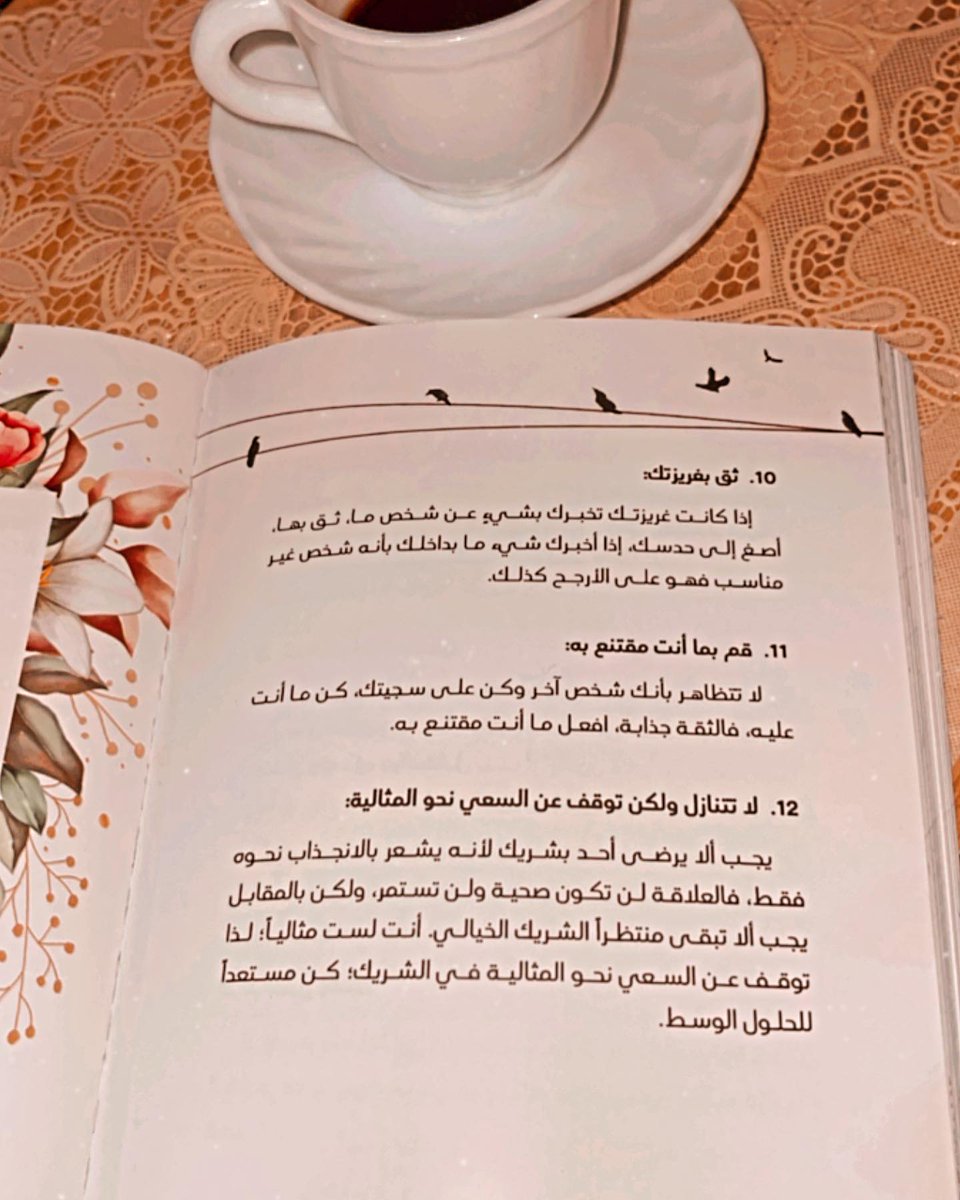 10. ثق بغريزتك:
إذا كانت غريزتك تخبرك بشيءٍ عن شخص ما، ثق بها.
أصغ إلى حدسك، إذا أخبرك شيء ما بداخلك بأنه شخص غير
مناسب فهو على الأرجح كذلك.
11. قم بما أنت مقتنع به:
لا تتظاهر بأنك شخص آخر وكن على سجيتك، كن ما أنت
عليه، فالثقة جذابة، افعل ما أنت مقتنع به.
12. لا تتنازل ولكن توقف عن السعي نحو المثالية:
يجب ألا يرضى أحد بشريك لأنه يشعر بالانجذاب نحوه
فقط، فالعلاقة لن تكون صحية ولن تستمر، ولكن بالمقابل
يجب ألا تبقى منتظراً الشريك الخيالي. أنت لست مثالياً؛ لذا
توقف عن السعي نحو المثالية في الشريك؛ كن مستعداً
للحلول الوسط.